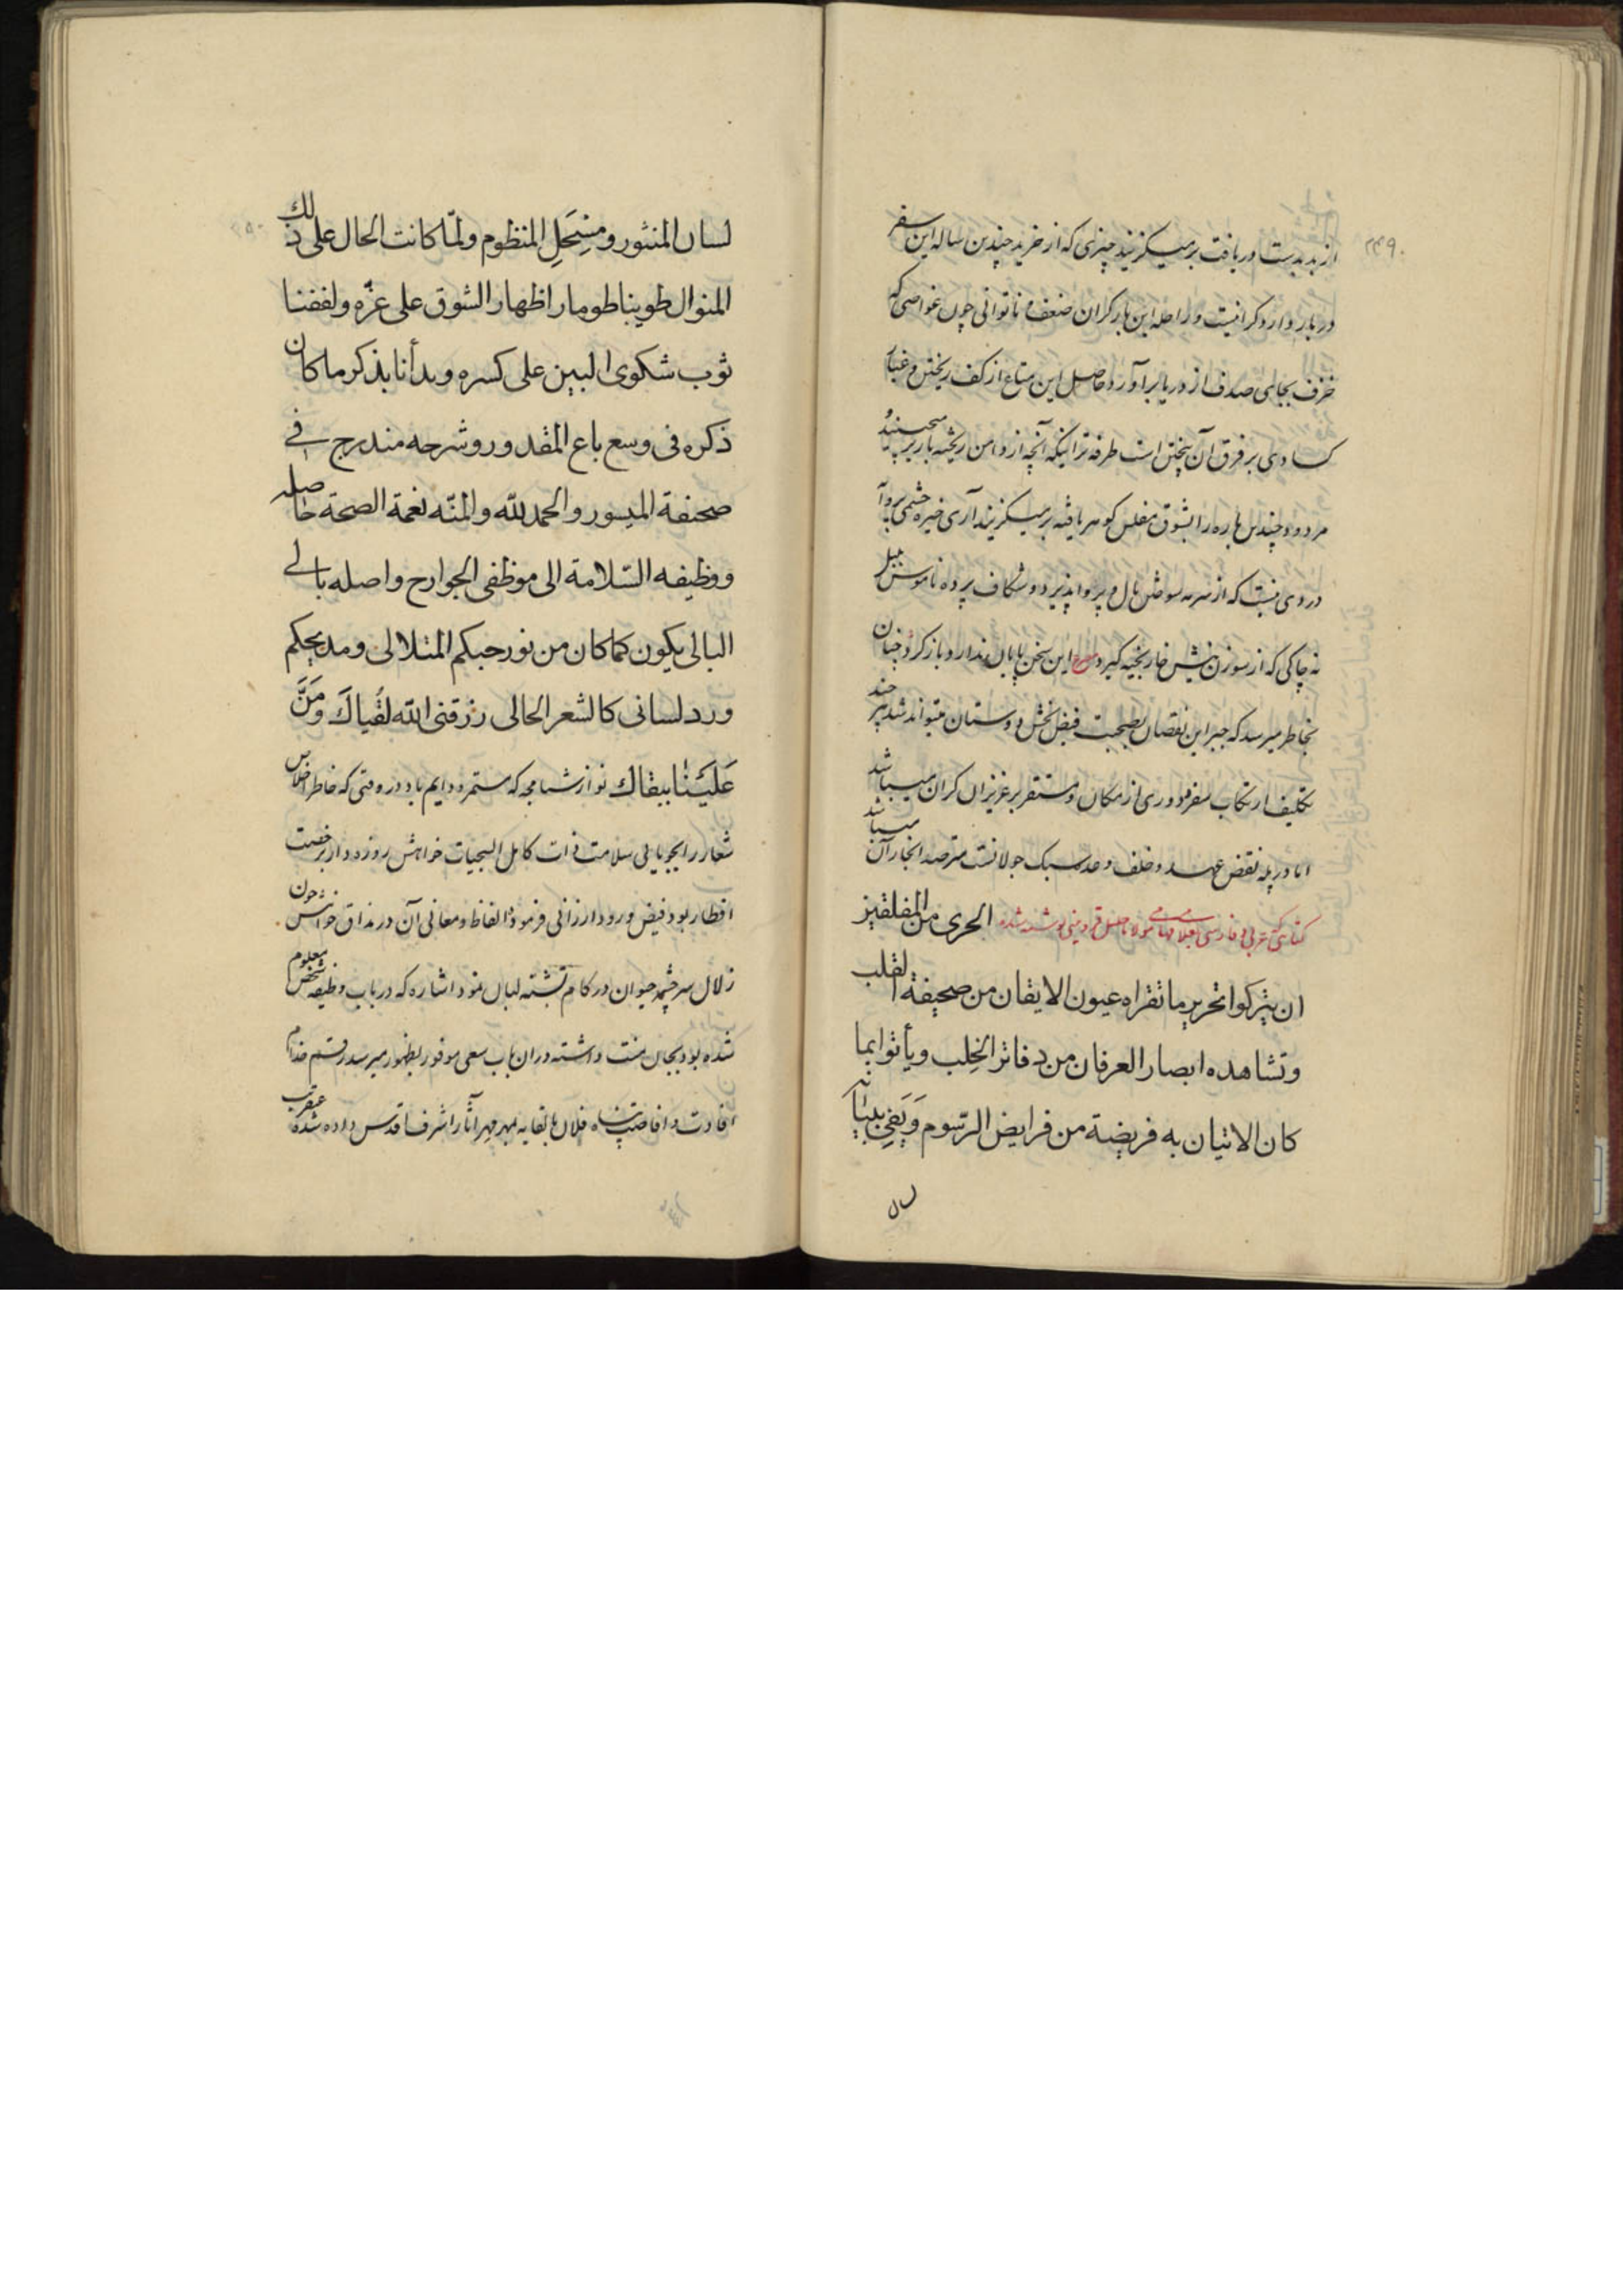 ۲۴۹
از بد بدست دریافت برمیگزیند چیزی که از خرید چندین ساله این سفر
در بار دارد گرانیست و راحله این بار گران ضعف و ناتوانی چون غواصی که
خزف بجای صدف از دریا برآورد حاصل این متاع از کف ریختن و غبار
کسادی بر فرق آن بیختن است طرفه تر اینکه آنچه از دامن ریخته باز بر
مردود چندین باره را بشوق مفلس گوهر یافته برمیگزیند آری خیره چشمی
دردی نیست که از سرمه سوختن بال و پر پذیرد و شکاف پرده ناموس
نه چاکی که از سوزن نیش خار بخیه گیرد مصرع این سخن پایان ندارد باز گرد و چنان
بخاطر میرسد که جبر این نقصان بصحبت فیض بخش دوستان میتواند شد هر چند
تکلیف ارتکاب سفر و دوری از مکان و مستقر بر عزیزان گران میباشد
اما در پله نقض عهد و خلف وعد سبک جولانست مترصد انجاز آن میباشد
کتابتی عربی و فارسی مولانا خلیل قزوینی نوشته شده الحری من المفلقین
ان یترکوا تحریر ما تقراه عیون الایقان من صحیفة القلب
وتشاهده ابصار العرفان من دفاتر الخلب ویأتوا بما
کان الاتیان به فریضة من فرایض الرسوم وَیَفی ببیانه
لسان المنثور ومنتحل المنظوم ولمّا کانت الحال علی ذلك
المنوال طوینا طومار اظهار الشوق علی غرّه ولففنا
ثوب شکوی البین علی کسره وبدأنا بذکر ما کان
ذکره فی وسع باع المقدور وشرحه مندرج فی
صحیفة المیسور والحمد لله والمنّه نعمة الصحة حاصله
ووظیفه السّلامة الی موظفی الجوارح واصله بالی
البالی یکون کما کان من نور حبکم المتلالی ومدیحکم
ورد لسانی کالشعر الحالی رزقنی الله لقُیاكَ ومَنَّ
عَلَیَنْا ببقاك نوازشنامجه که مستمر و دایم باد در وقتی که خاطر اخلاص
شعار را بجویایی سلامت ذات کامل السجیات خواهش روزه دار برخصت
افطار بود فیض ورود ارزانی فرمود الفاظ و معانی آن در مذاق خواهش چون
زلال سرچشمه حیوان در کام تشنه لبان نمود اشاره که در باب وظیفه شخص معلوم
شده بود بجان منت داشته در ان باب سعی موفور بظهور میرسد رقم خدام
افادت و افاضت پناه فلان بمهر مهر آثار اشرف اقدس داده شده عنقریب